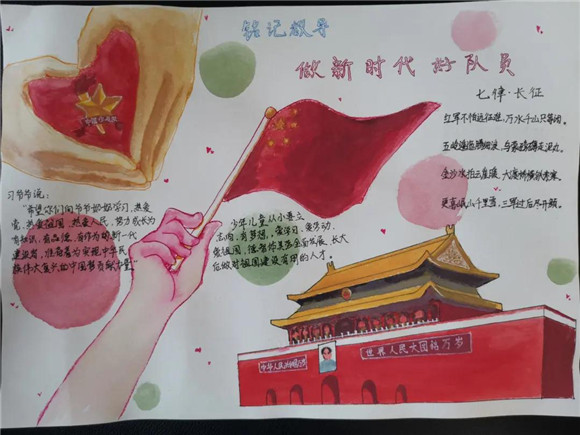 铭记教导
做新时代好队员
中国少先队
七律·长征
红军不怕远征难,万水千山只等闲。
五岭逶迤腾细浪,乌蒙磅礴走泥丸。
金沙水拍云崖暖,大渡桥横铁索寒。
更喜岷山千里雪,三军过后尽开颜。
习爷爷说:
"希望你们向爷爷奶奶学习,热爱
党、热爱祖国、热爱人民,努力成长为
有知识、有品德、有作为的新一代
建设者,准备着为实现中华民
族伟大复兴的中国梦贡献力量"
少年儿童从小要立
志向、有梦想,爱学习、爱劳动、
爱祖国,德智体美全面发展,长大
后做对祖国建设有用的人才。
中华人民共和国万岁
世界人民大团结万岁